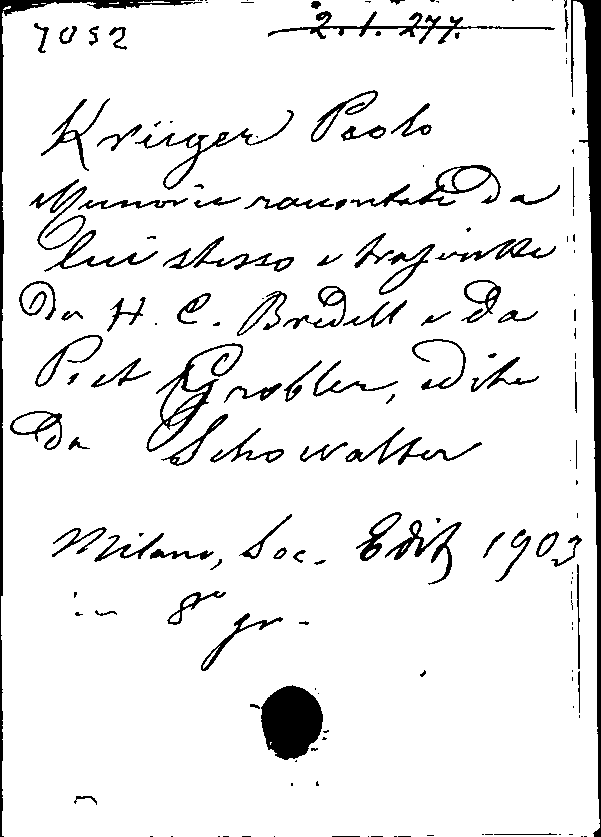 7052
2.1.277.
Krüger Paolo
Memorie raccontate da
lui stesso e trascritte
da H. C. Bredell e da
Piet Grobler, edite
da Schowalter
Milano, Soc. Edit 1903
in 8º gr.